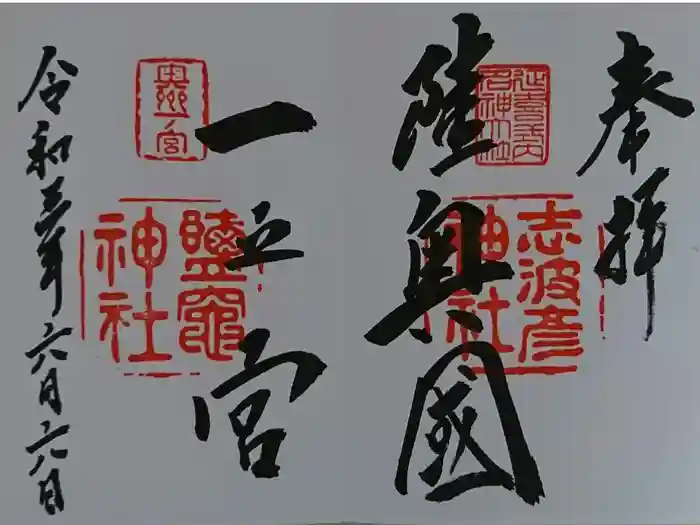 奉拝
延喜式内
名神大社
志波彦
神社
陸奥國
一之宮
奥州一宮
鹽竈
神社
令和三年六月六日